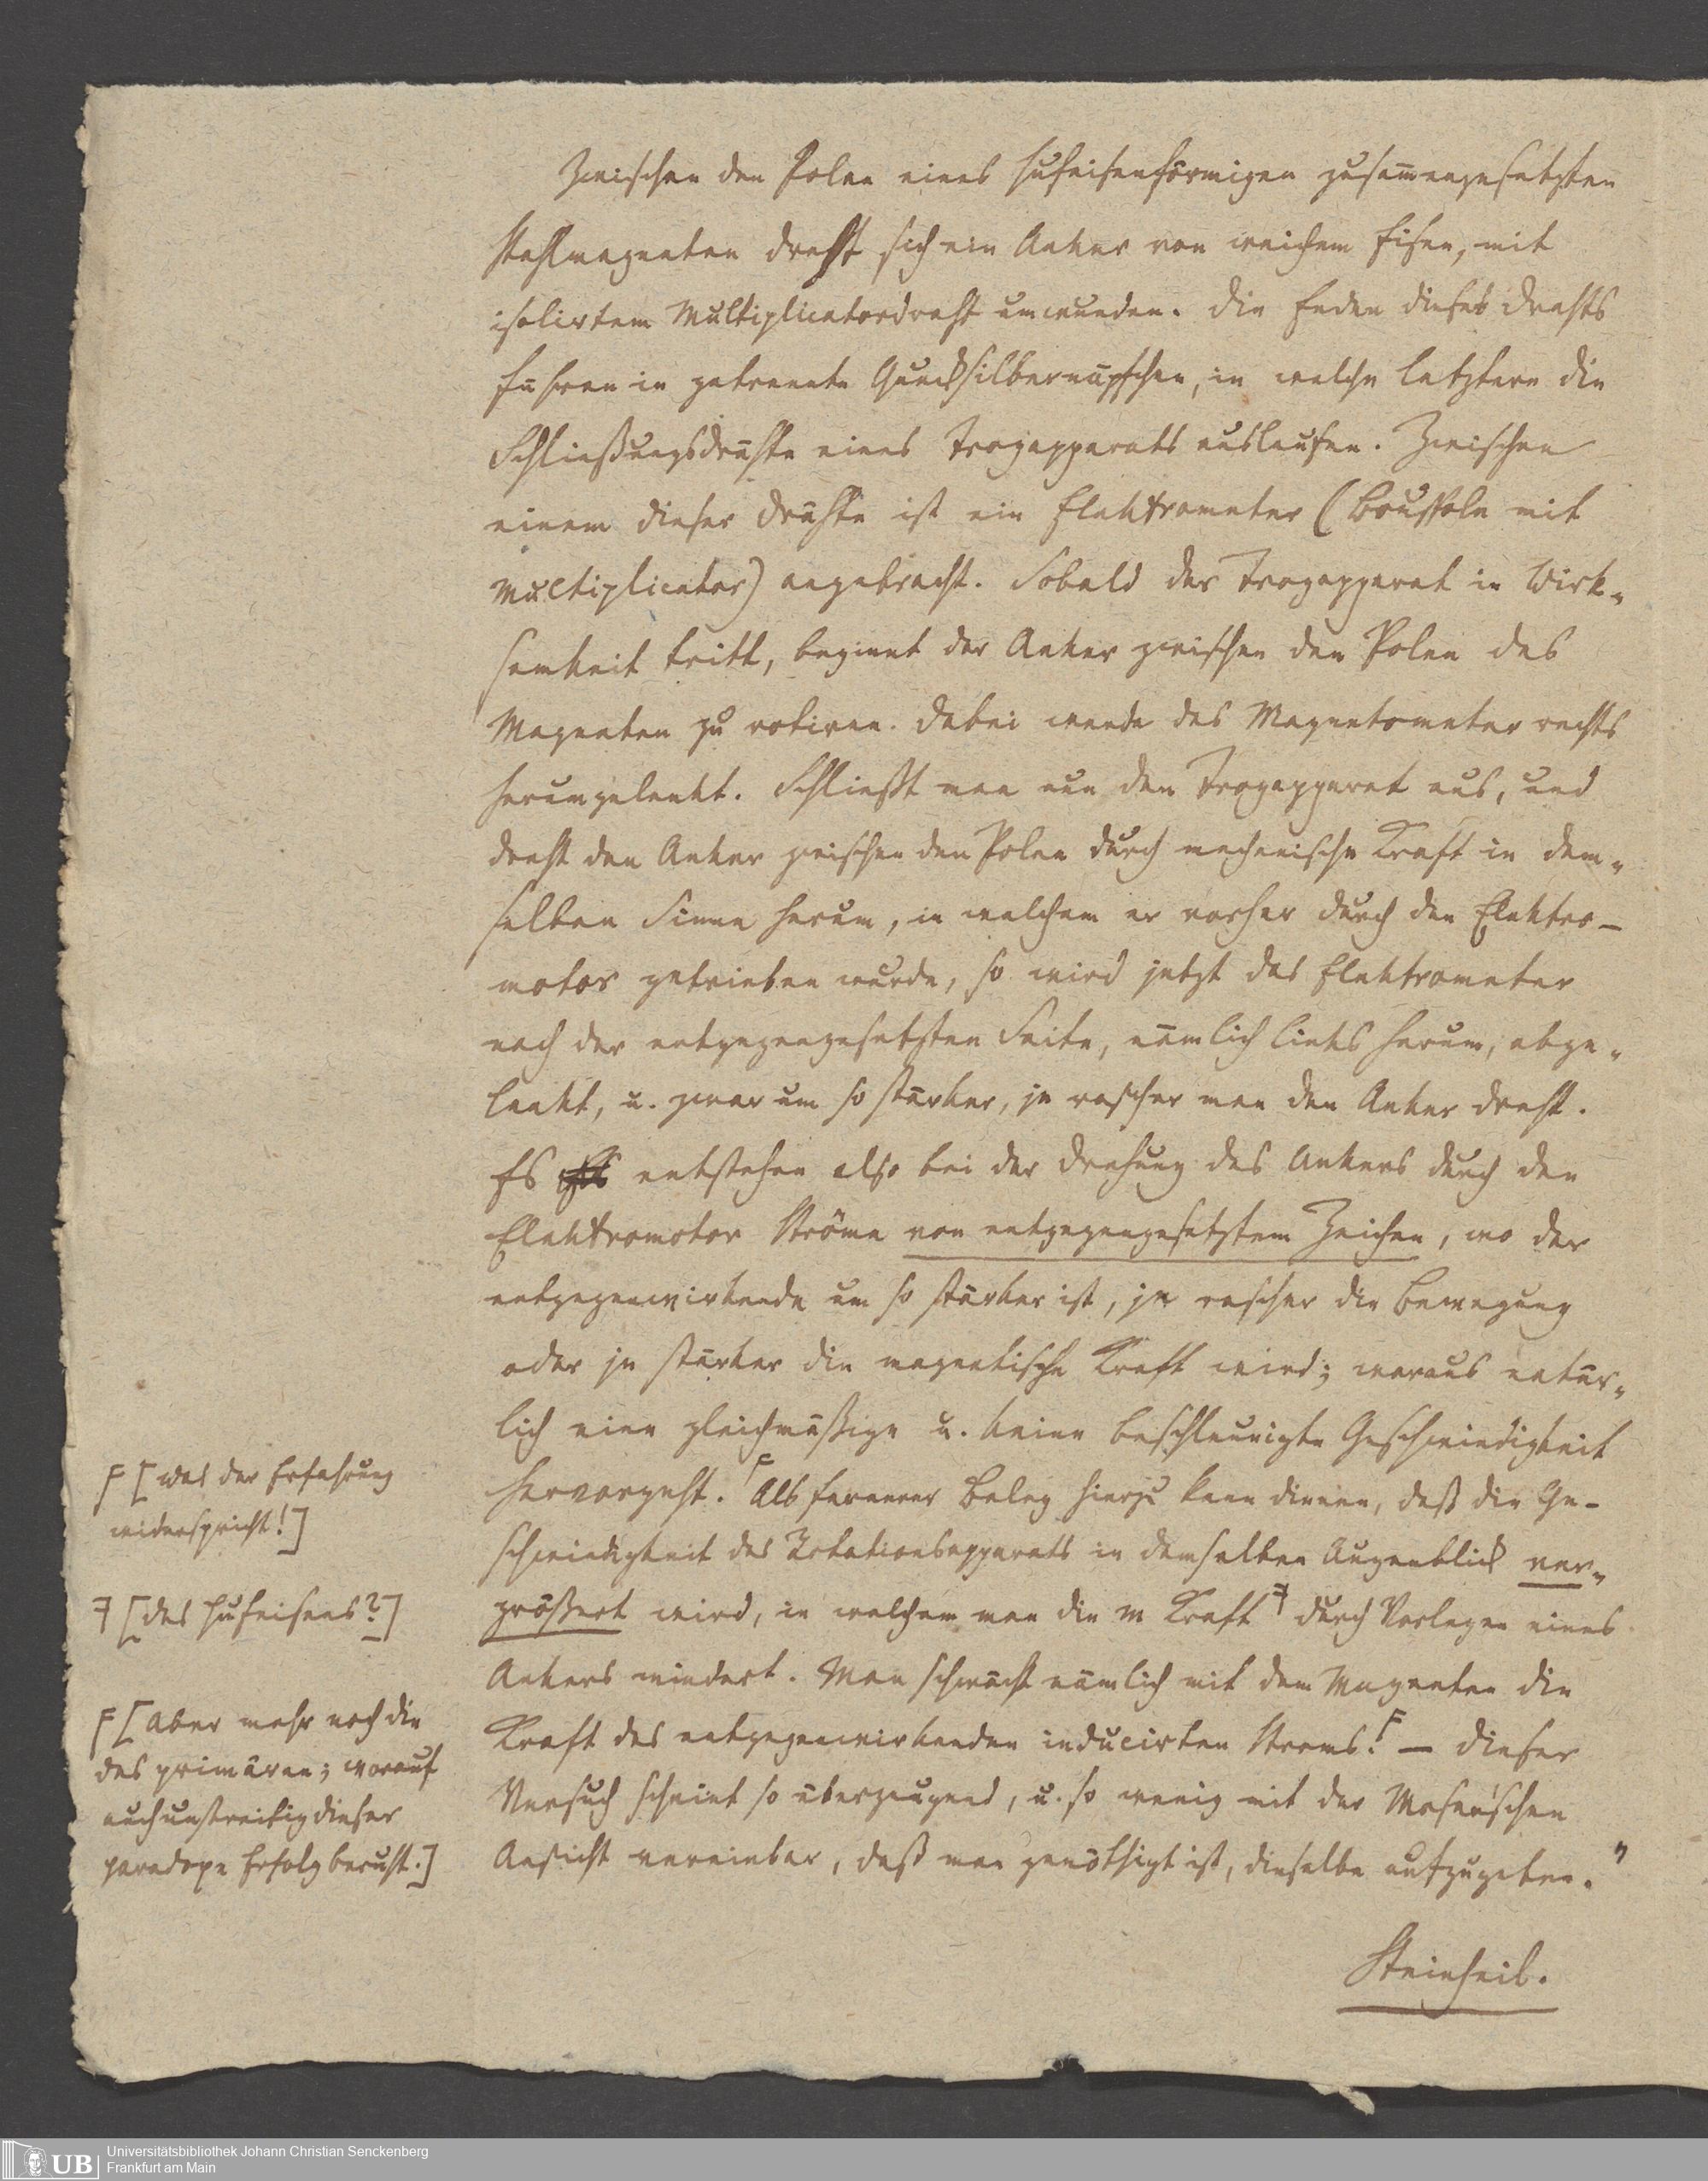 Zwischen den Polen eines hufeisenförmigen zusam̄engesetzten
Stahlmagneten dreht sich ein Anker von weichem Eisen, mit
isolirtem Multiplicatordraht umwunden. Die Enden dieses Drahts
führen in getrennte Quecksilbernäpfchen, in welche letztere die
Schließungsdrähte eines Trogapparats auslaufen. Zwischen
einem dieser Drähte ist ein Elektrometer (Boussole mit
Multiplicator) angebracht. Sobald der Trogapparat in Wirk-
samkeit tritt, beginnt der Anker zwischen den Polen des
Magneten zu rotiren. Dabei werde das Magnetometer rechts
herumgelenkt. Schließt man nun den Trogapparat aus, und
dreht den Anker zwischen den Polen durch mechanische Kraft in dem-
selben Sinne herum, in welchem er vorher durch den Elektro-
motor getrieben wurde, so wird jetzt das Elektrometer
nach der entgegengesetzten Seite, nämlich links herum, abge-
lenkt, u. zwar um so stärker, je rascher man den Anker dreht.
Es entstehen also bei der Drehung des Ankers durch den
Elektromotor Ströme von entgegengesetztem Zeichen, wo der
entgegenwirkende um so stärker ist, je rascher die Bewegung
oder je stärker die magnetische Kraft wird; woraus natür-
lich eine gleichmäßige u. keine beschleunigte Geschwindigkeit
hervorgeht. F Als fernerer Beleg hierzu kann dienen, daß die Ge-
schwindigkeit des Rotationsapparats in demselben Augenblick ver-
größert wird, in welchem man die m Kraft durch Vorlegen eines
Ankers mindert. Man schwächt nämlich mit dem Magneten die
Kraft des entgegenwirkenden inducirten Stroms. F — Dieser
Versuch scheint so überzeugend, u. so wenig mit der Moser'schen
Ansicht vereinbar, daß man genöthigt ist, dieselbe aufzugeben."
Steinheil.
F [was der Erfahrung
widerspricht!]
[des Hufeisens?]
F [Aber mehr noch die
des primären; worauf
auch unstreitig dieser
paradoxe Erfolg beruht.]
UB
Universitätsbibliothek Johann Christian Senckenberg
Frankfurt am Main